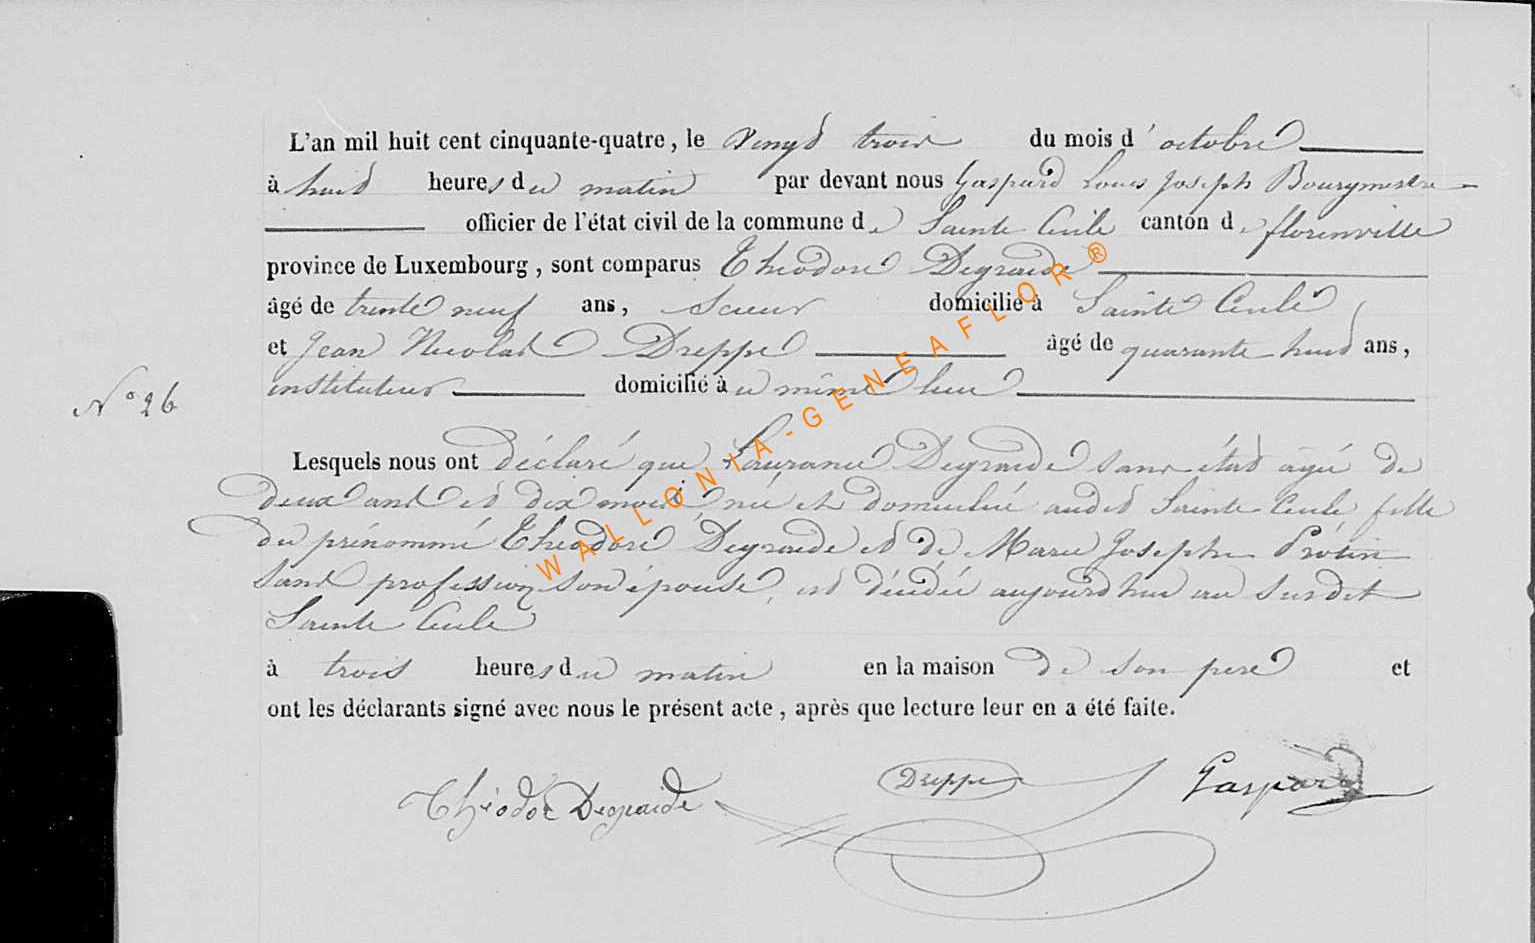 L'an mil huit cent cinquante-quatre, le Vingt trois du mois d'octobre
à huit heures du matin par devant nous Gaspard Louis Joseph Bourgmestre
officier de l'état civil de la commune de Sainte Cecile canton de florenville
province de Luxembourg, sont comparus Théodore Degraide
âgé de trente neuf ans, Scieur domicilié à Sainte Cecile
et Jean Nicolas Dreppe âgé de quarante huit ans,
N° 26
instituteur domicilié à u même lieu
Lesquels nous ont déclaré que Degraide sans état agée de
deux ans et dix mois, née et domiciliée audit Sainte Cecile fille
du prénommé Théodore Degraide et de Marie Josephe Protin
sans profession son épouse, est décédée aujourd'hui au susdit
Sainte Cecile
à trois heures du matin en la maison de son pere et
ont les déclarants signé avec nous le présent acte, après que lecture leur en a été faite.
Théodor Degraide Dreppe Gaspard
WALLONIA-GENEAFLOR®